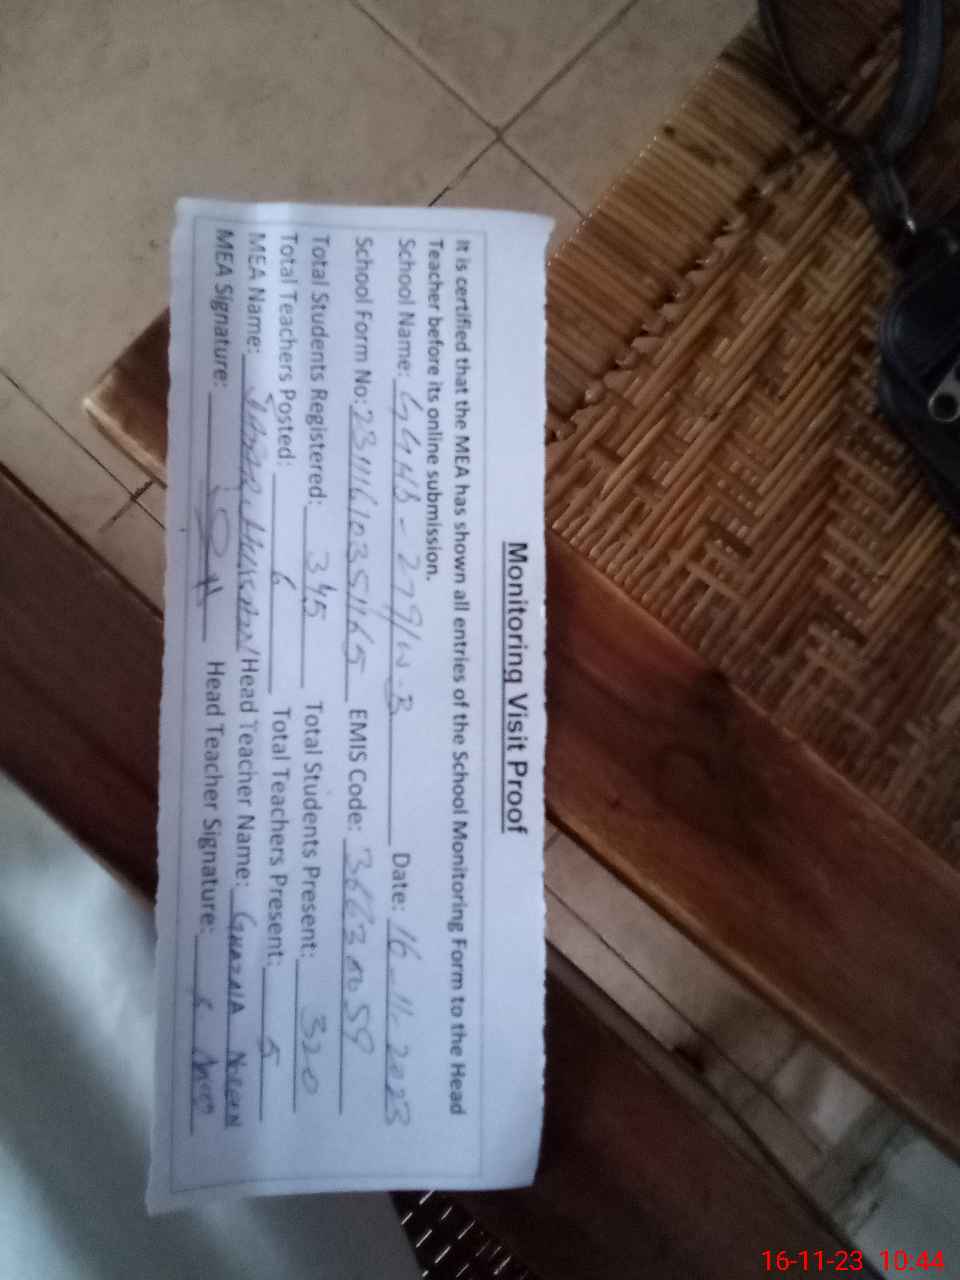 Monitoring Visit Proof
It is certified that the MEA has shown all entries of the School Monitoring Form to the Head
Teacher before its online submission.
School Name: GGHS - 279/W.B Date: 16-11-2023
School Form No: EMIS Code:
Total Students Registered: 345 Total Students Present: 320
Total Teachers Posted: 6 Total Teachers Present: 5
MEA Name: Head Teacher Name: GHAZALA NOREEN
MEA Signature: Head Teacher Signature:
16-11-23 10:44